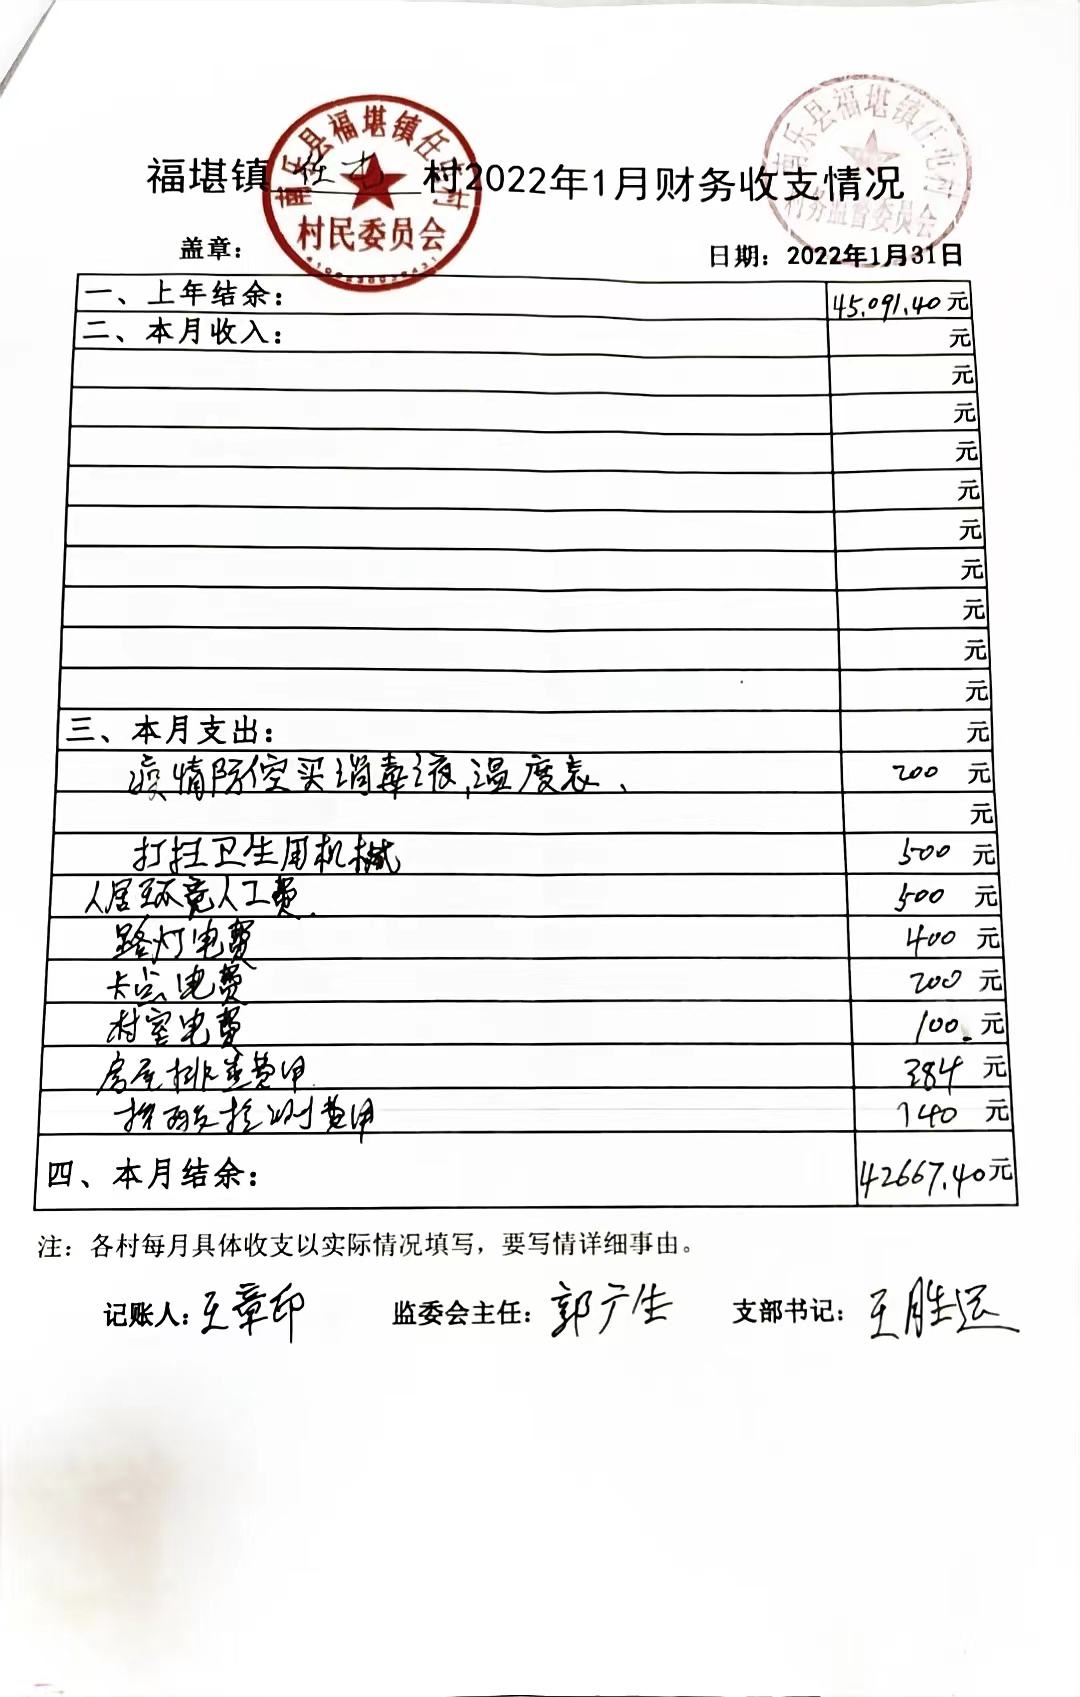 南乐县福堪镇任屯村
村民委员会
南乐县福堪镇任屯村
村务监督委员会
福堪镇任屯村2022年1月财务收支情况
盖章：
日期：2022年1月31日
一、上年结余： 45.091.40元
二、本月收入： 元
元
元
元
元
元
元
元
元
元
三、本月支出： 元
疫情防控买消毒液,温度表、 200 元
元
打扫卫生用机械 500 元
人居环境人工费. 500 元
路灯电费 400 元
卡点电费 200 元
村室电费 100. 元
房屋排查费用 384 元
核酸检测费用 140 元
四、本月结余： 42667.40元
注：各村每月具体收支以实际情况填写，要写情详细事由。
记账人：王章印 监委会主任：郭广生 支部书记：王胜运